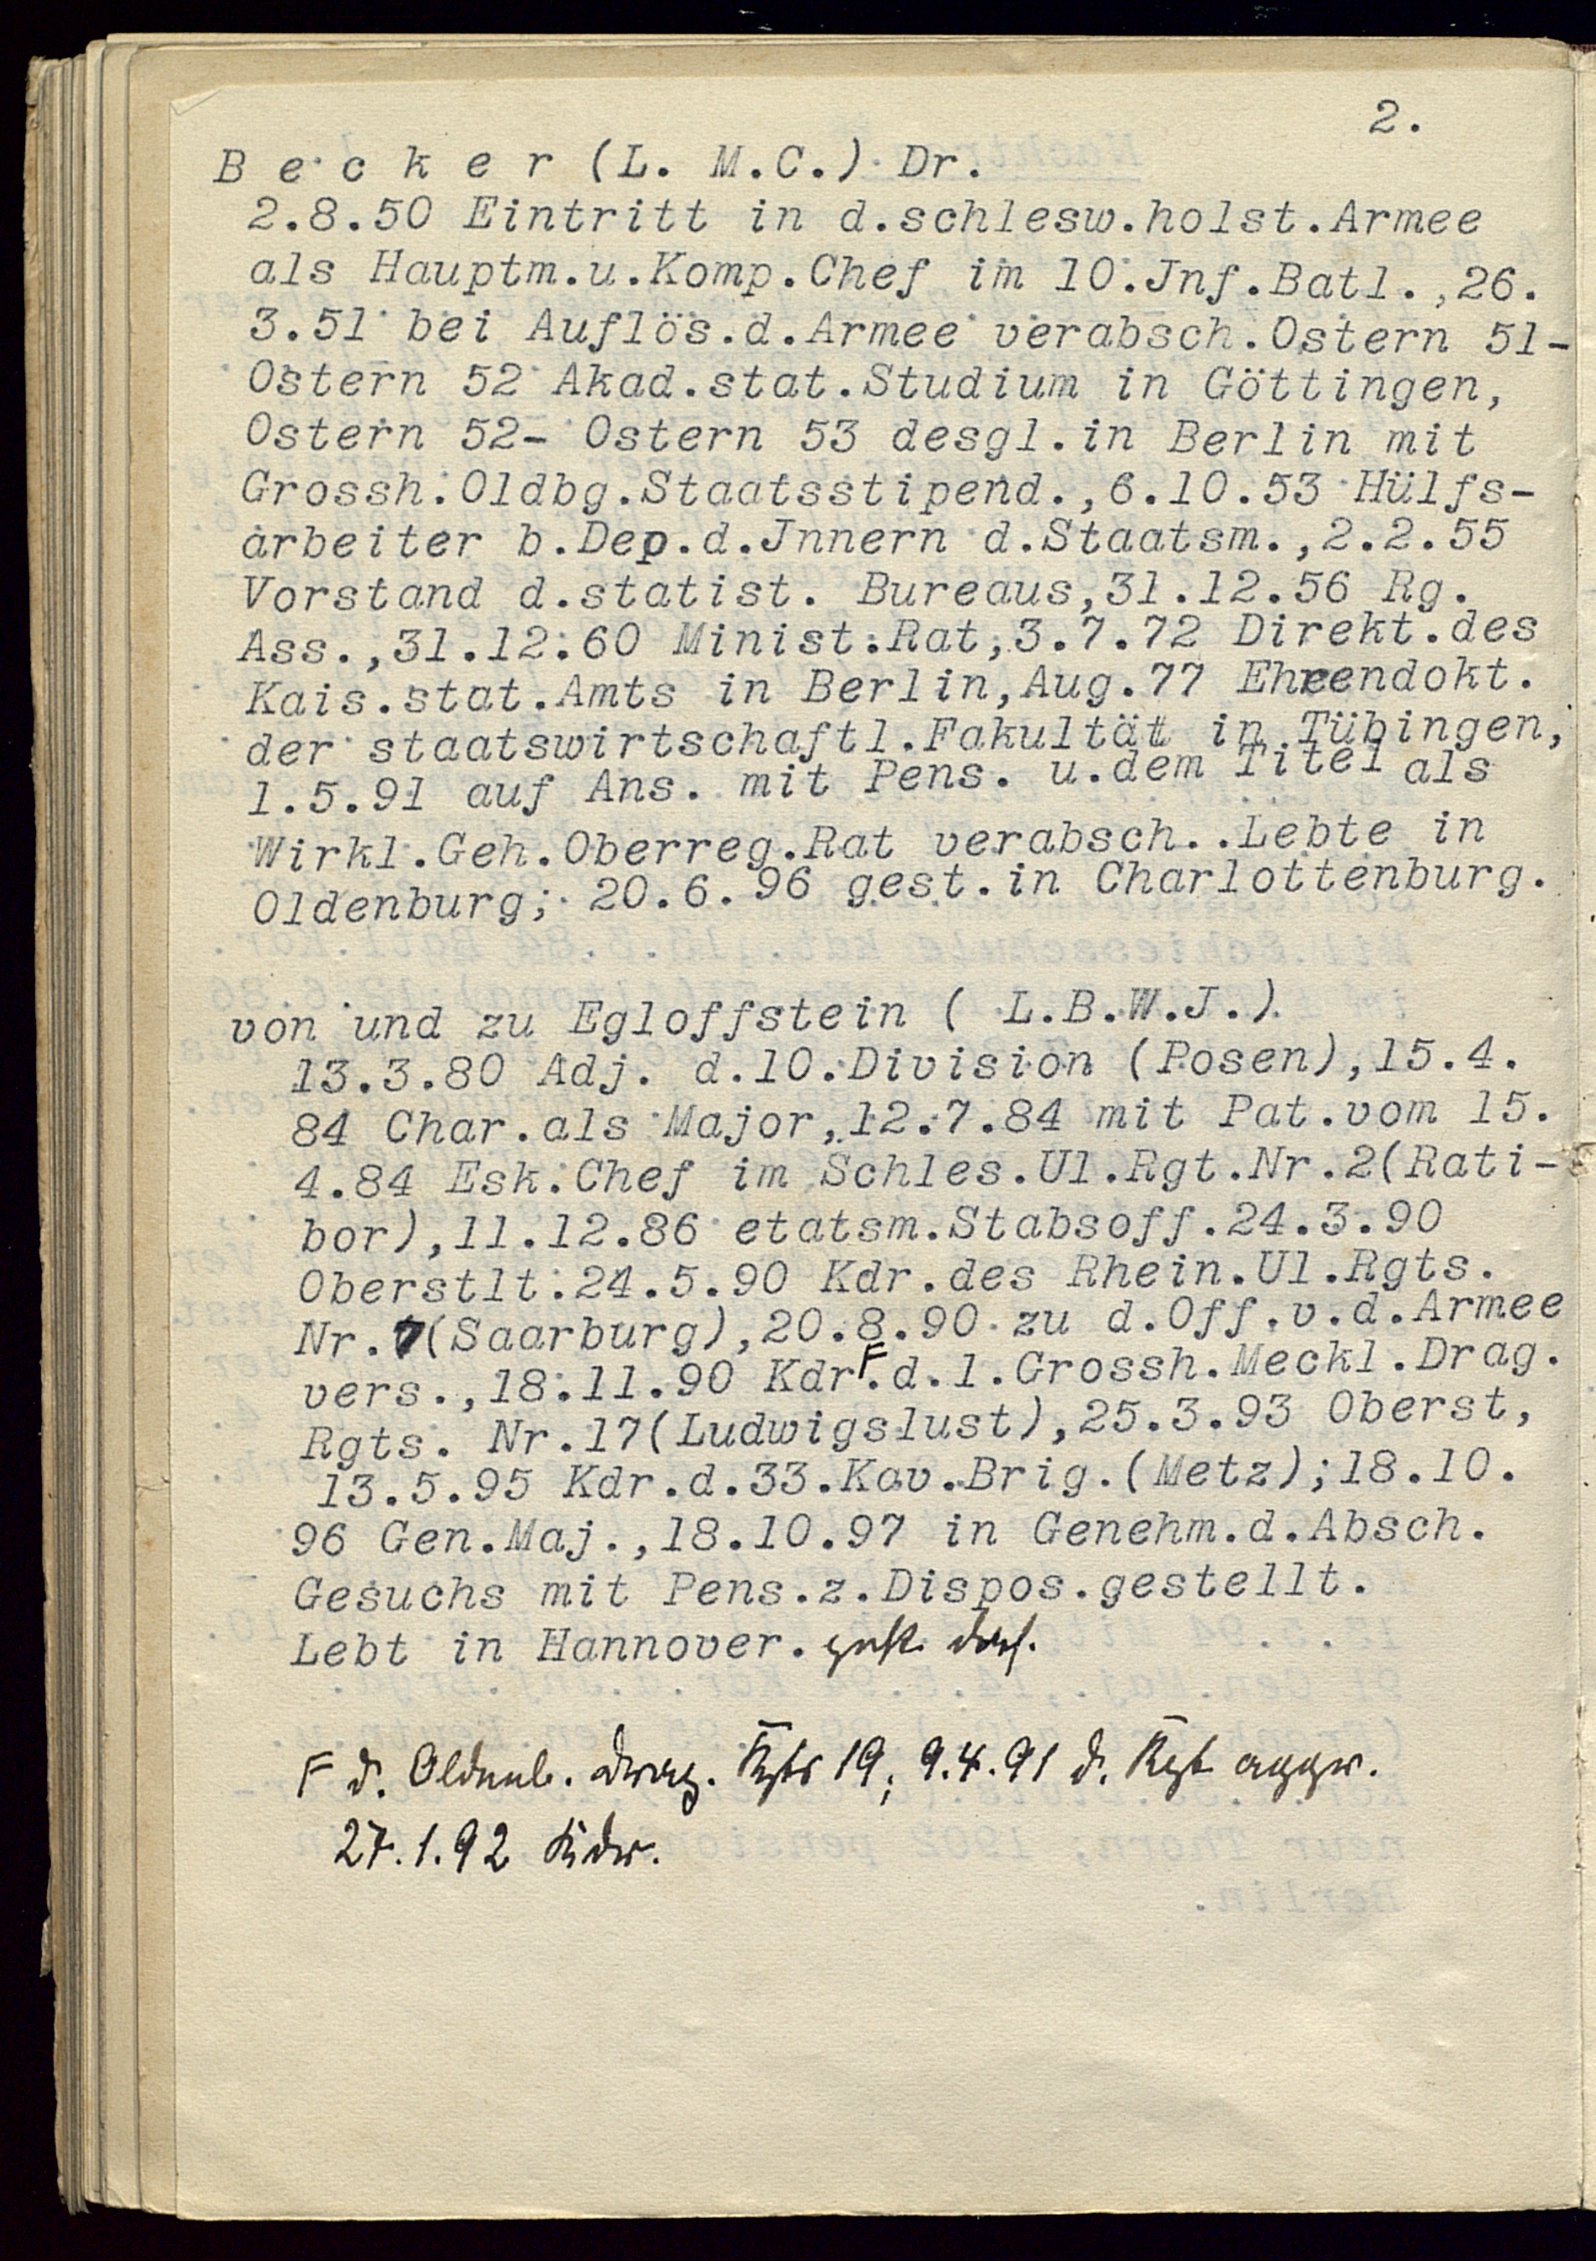 2.
B e c k e r (L. M.C.) Dr.
2.8.50 Eintritt in d.schlesw.holst.Armee
als Hauptm.u.Komp.Chef im 10.Jnf.Batl.,26.
3.51 bei Auflös.d.Armee verabsch.Ostern 51-
Ostern 52 Akad.stat.Studium in Göttingen,
Ostern 52- Ostern 53 desgl.in Berlin mit
Grossh.Oldbg.Staatsstipend.,6.10.53 Hülfs-
arbeiter b.Dep.d.Jnnern d.Staatsm.,2.2.55
Vorstand d.statist. Bureaus,31.12.56 Rg.
Ass.,31.12.60 Minist.Rat,3.7.72 Direkt.des
Kais.stat.Amts in Berlin,Aug.77 Ehrendokt.
der staatswirtschaftl.Fakultät in Tübingen,
1.5.91 auf Ans. mit Pens. u.dem Titel als
Wirkl.Geh.Oberreg.Rat verabsch..Lebte in
Oldenburg; 20.6.96 gest.in Charlottenburg.
von und zu Egloffstein ( L.B.W.J.)
13.3.80 Adj. d.10.Division (Posen),15.4.
84 Char.als Major,12.7.84 mit Pat.vom 15.
4.84 Esk.Chef im Schles.Ul.Rgt.Nr.2(Rati-
bor),11.12.86 etatsm.Stabsoff.24.3.90
Oberstlt.24.5.90 Kdr.des Rhein.Ul.Rgts.
Nr.7(Saarburg),20.8.90 zu d.Off.v.d.Armee
vers.,18.11.90 Kdr.F d.1.Grossh.Meckl.Drag.
Rgts. Nr.17(Ludwigslust),25.3.93 Oberst,
13.5.95 Kdr.d.33.Kav.Brig.(Metz);18.10.
96 Gen.Maj.,18.10.97 in Genehm.d.Absch.
Gesuchs mit Pens.z.Dispos.gestellt.
Lebt in Hannover. gest. das.
F d. Oldenb. Drag. Rgts 19; 9.4.91 d. Rgt aggr.
27.1.92 Kdr.